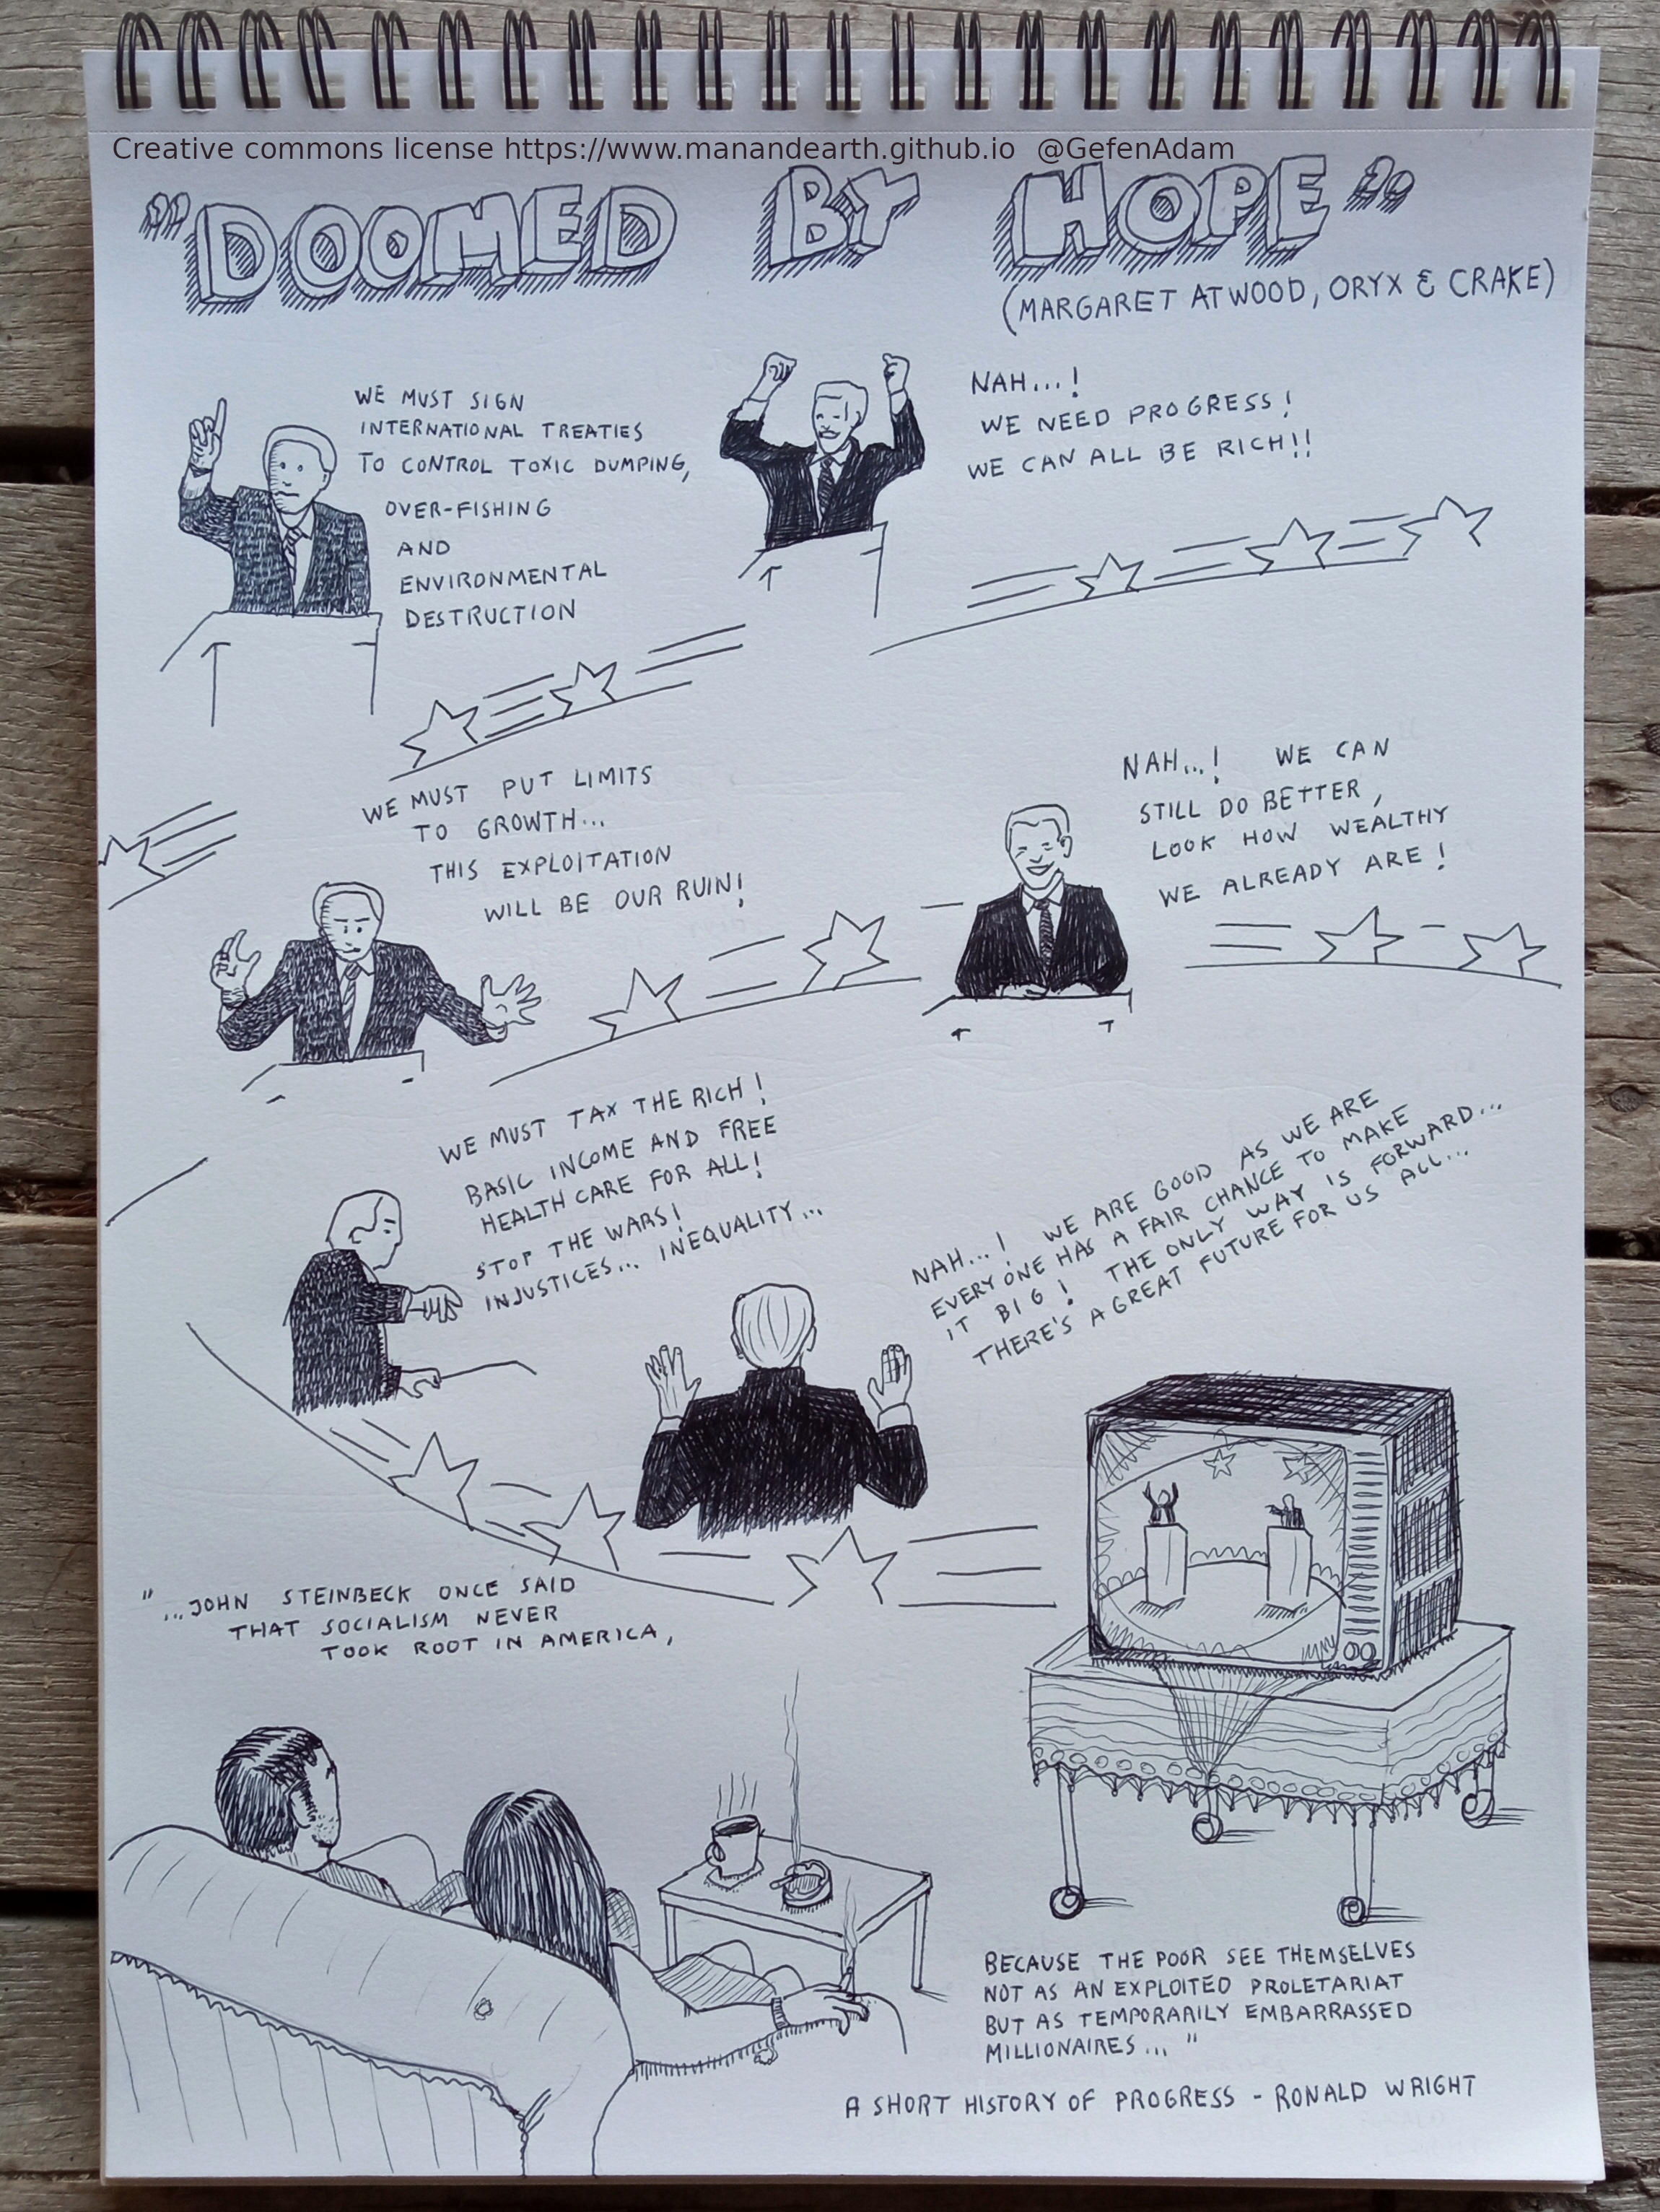 Creative commons license https://www.manandearth.github.io @GefenAdam
"DOOMED BY HOPE"
(MARGARET ATWOOD, ORYX & CRAKE)
WE MUST SIGN
INTERNATIONAL TREATIES
TO CONTROL TOXIC DUMPING,
OVER-FISHING
AND
ENVIRONMENTAL
DESTRUCTION
NAH...!
WE NEED PROGRESS!
WE CAN ALL BE RICH!!
WE MUST PUT LIMITS
TO GROWTH...
THIS EXPLOITATION
WILL BE OUR RUIN!
NAH...! WE CAN
STILL DO BETTER,
LOOK HOW WEALTHY
WE ALREADY ARE!
WE MUST TAX THE RICH!
BASIC INCOME AND FREE
HEALTH CARE FOR ALL!
STOP THE WARS!
INJUSTICES... INEQUALITY...
NAH...! WE ARE GOOD AS WE ARE
EVERYONE HAS A FAIR CHANCE TO MAKE
IT BIG! THE ONLY WAY IS FORWARD...
THERE'S A GREAT FUTURE FOR US ALL...
"...JOHN STEINBECK ONCE SAID
THAT SOCIALISM NEVER
TOOK ROOT IN AMERICA,
BECAUSE THE POOR SEE THEMSELVES
NOT AS AN EXPLOITED PROLETARIAT
BUT AS TEMPORARILY EMBARRASSED
MILLIONAIRES..."
A SHORT HISTORY OF PROGRESS - RONALD WRIGHT